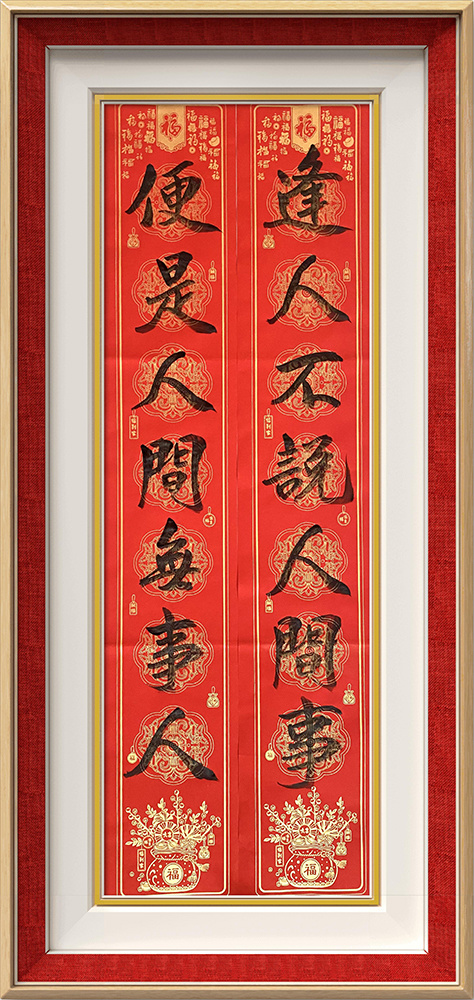 逢人不説人間事
便是人間無事人
福
福
福
福